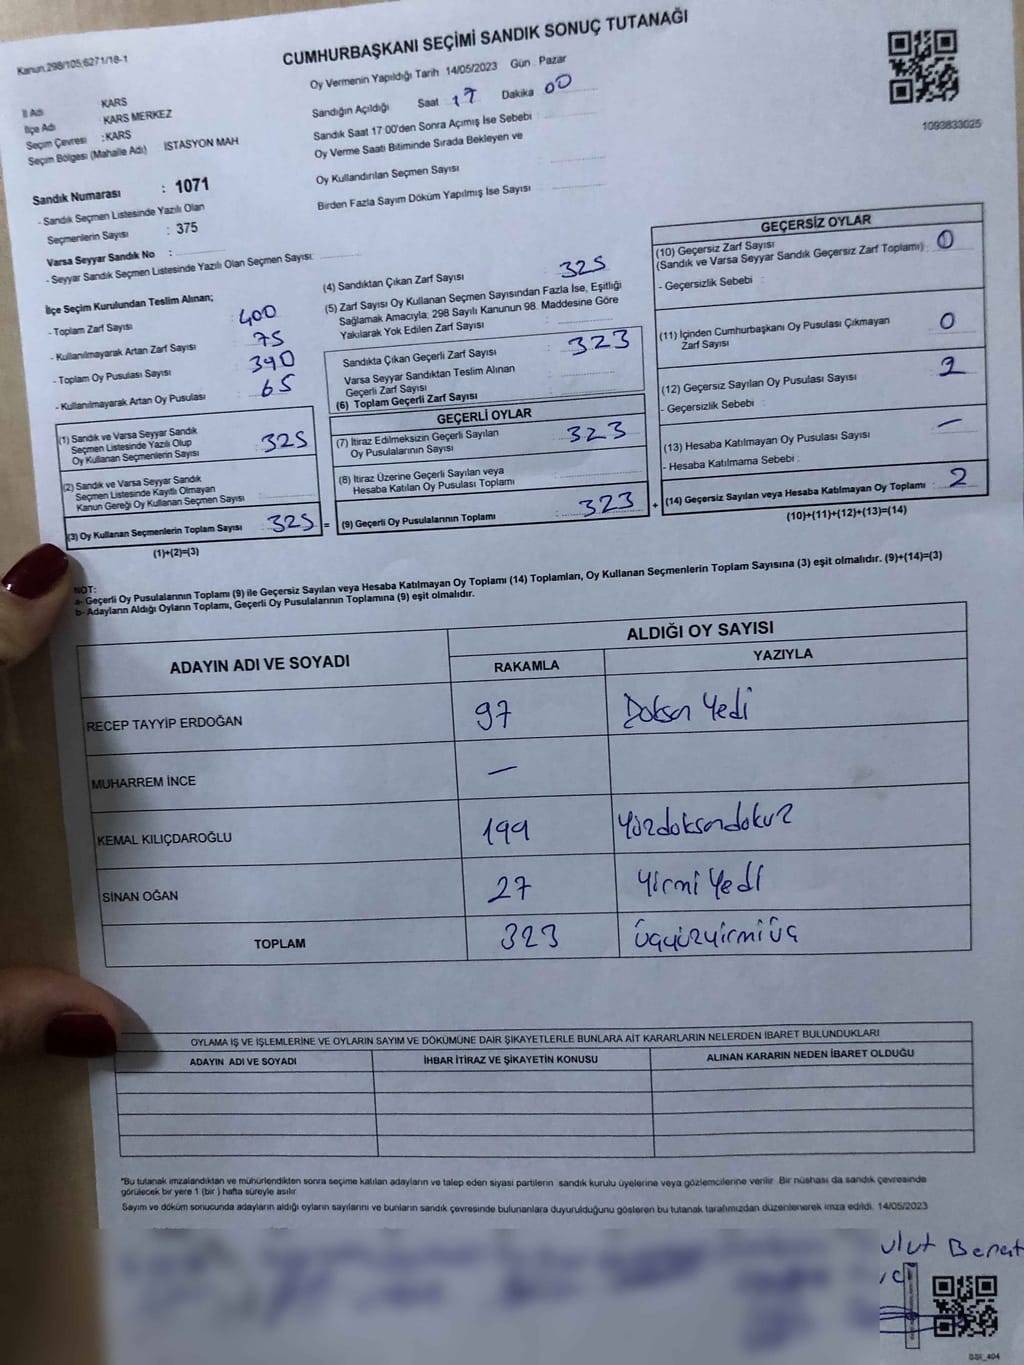 Kanun,298/105;6271/18-1
CUMHURBAŞKANI SEÇİMİ SANDIK SONUÇ TUTANAĞI
Oy Vermenin Yapıldığı Tarih 14/05/2023 Gün Pazar
Sandığın Açıldığı Saat 17 Dakika 00
Sandık Saat 17 00'den Sonra Açımış İse Sebebi :
Oy Verme Saati Bitiminde Sırada Bekleyen ve
Oy Kullandırılan Seçmen Sayısı
Birden Fazla Sayım Döküm Yapılmış İse Sayısı
1093833025
İl Adı KARS
İlçe Adı : KARS MERKEZ
Seçim Çevresi : KARS
Seçim Bölgesi (Mahalle Adı) İSTASYON MAH
Sandık Numarası : 1071
- Sandık Seçmen Listesinde Yazılı Olan
Seçmenlerin Sayısı : 375
Varsa Seyyar Sandık No :
- Seyyar Sandık Seçmen Listesinde Yazılı Olan Seçmen Sayısı:
İlçe Seçim Kurulundan Teslim Alınan;
- Toplam Zarf Sayısı 400
- Kullanılmayarak Artan Zarf Sayısı 75
- Toplam Oy Pusulası Sayısı 390
- Kullanılmayarak Artan Oy Pusulası 65
(1) Sandık ve Varsa Seyyar Sandık
Seçmen Listesinde Yazılı Olup
Oy Kullanan Seçmenlerin Sayısı : 325
(2) Sandık ve Varsa Seyyar Sandık
Seçmen Listesinde Kayıtlı Olmayan
Kanun Gereği Oy Kullanan Seçmen Sayısı
(3) Oy Kullanan Seçmenlerin Toplam Sayısı : 325 =
(1)+(2)=(3)
(4) Sandıktan Çıkan Zarf Sayısı : 325
(5) Zarf Sayısı Oy Kullanan Seçmen Sayısından Fazla İse, Eşitliği
Sağlamak Amacıyla; 298 Sayılı Kanunun 98. Maddesine Göre
Yakılarak Yok Edilen Zarf Sayısı :
Sandıkta Çıkan Geçerli Zarf Sayısı : 323
Varsa Seyyar Sandıktan Teslim Alınan
Geçerli Zarf Sayısı :
(6) Toplam Geçerli Zarf Sayısı :
GEÇERLİ OYLAR
(7) İtiraz Edilmeksizin Geçerli Sayılan
Oy Pusulalarının Sayısı : 323
(8) İtiraz Üzerine Geçerli Sayılan veya
Hesaba Katılan Oy Pusulası Toplamı :
(9) Geçerli Oy Pusulalarının Toplamı : 323 +
GEÇERSİZ OYLAR
(10) Geçersiz Zarf Sayısı
(Sandık ve Varsa Seyyar Sandık Geçersiz Zarf Toplamı) : 0
- Geçersizlik Sebebi :
(11) İçinden Cumhurbaşkanı Oy Pusulası Çıkmayan
Zarf Sayısı : 0
(12) Geçersiz Sayılan Oy Pusulası Sayısı : 2
- Geçersizlik Sebebi :
(13) Hesaba Katılmayan Oy Pusulası Sayısı : —
- Hesaba Katılmama Sebebi :
(14) Geçersiz Sayılan veya Hesaba Katılmayan Oy Toplamı : 2
(10)+(11)+(12)+(13)=(14)
NOT:
a- Geçerli Oy Pusulalarının Toplamı (9) ile Geçersiz Sayılan veya Hesaba Katılmayan Oy Toplamı (14) Toplamları, Oy Kullanan Seçmenlerin Toplam Sayısına (3) eşit olmalıdır. (9)+(14)=(3)
b- Adayların Aldığı Oyların Toplamı, Geçerli Oy Pusulalarının Toplamına (9) eşit olmalıdır.
ADAYIN ADI VE SOYADI
ALDIĞI OY SAYISI
RAKAMLA YAZIYLA
RECEP TAYYİP ERDOĞAN 97 Doksan Yedi
MUHARREM İNCE —
KEMAL KILIÇDAROĞLU 199 Yüzdoksandokuz
SİNAN OĞAN 27 Yirmi Yedi
TOPLAM 323 Üçyüzyirmi üç
OYLAMA İŞ VE İŞLEMLERİNE VE OYLARIN SAYIM VE DÖKÜMÜNE DAİR ŞİKAYETLERLE BUNLARA AİT KARARLARIN NELERDEN İBARET BULUNDUKLARI
ADAYIN ADI VE SOYADI İHBAR İTİRAZ VE ŞİKAYETİN KONUSU ALINAN KARARIN NEDEN İBARET OLDUĞU
*Bu tutanak imzalandıktan ve mühürlendikten sonra seçime katılan adayların ve talep eden siyasi partilerin sandık kurulu üyelerine veya gözlemcilerine verilir. Bir nüshası da sandık çevresinde
görülecek bir yere 1 (bir ) hafta süreyle asılır.
Sayım ve döküm sonucunda adayların aldığı oyların sayılarını ve bunların sandık çevresinde bulunanlara duyurulduğunu gösteren bu tutanak tarafımızdan düzenlenerek imza edildi. 14/05/2023
ulut Berat